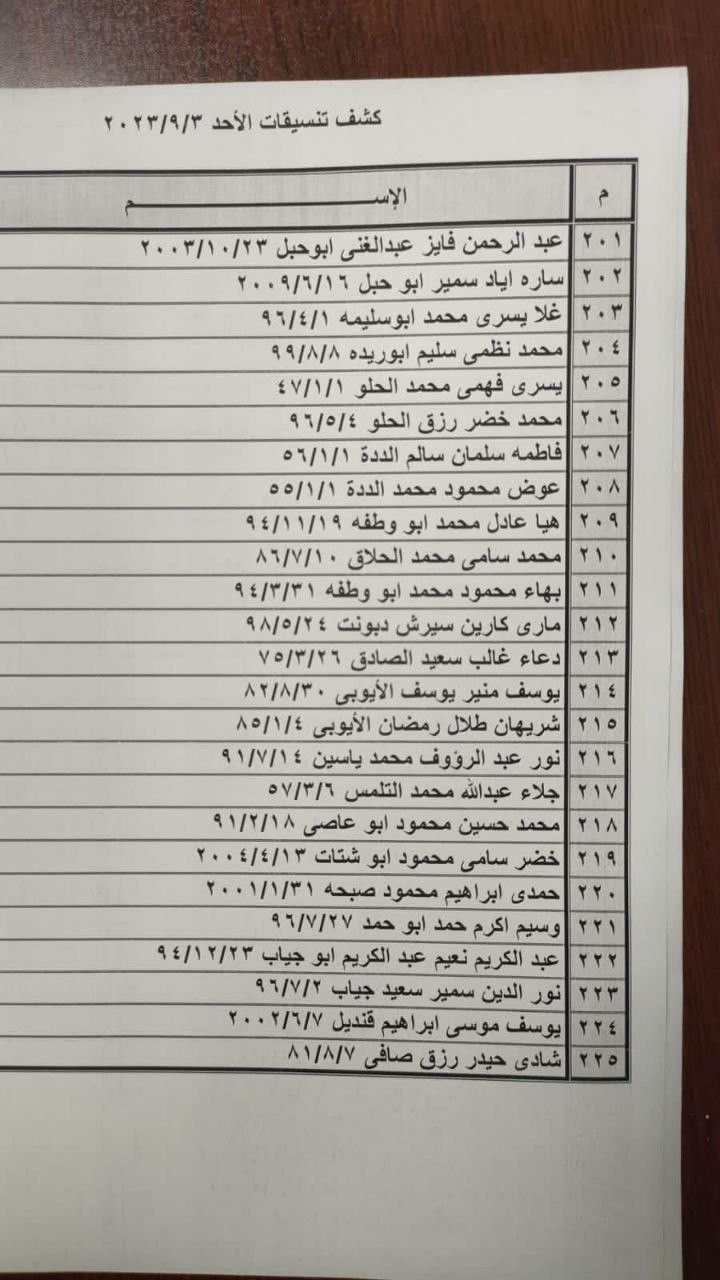 كشف تنسيقات الأحد ٢٠٢٣/٩/٣
م الإســـــــــــــــــــــم
٢٠١ عبد الرحمن فايز عبدالغنى ابوحبل ٢٠٠٣/١٠/٢٣
٢٠٢ ساره اياد سمير ابو حبل ٢٠٠٩/٦/١٦
٢٠٣ غلا يسرى محمد ابوسليمه ٩٦/٤/١
٢٠٤ محمد نظمى سليم ابوريده ٩٩/٨/٨
٢٠٥ يسرى فهمى محمد الحلو ٤٧/١/١
٢٠٦ محمد خضر رزق الحلو ٩٦/٥/٤
٢٠٧ فاطمه سلمان سالم الددة ٥٦/١/١
٢٠٨ عوض محمود محمد الددة ٥٥/١/١
٢٠٩ هيا عادل محمد ابو وطفه ٩٤/١١/١٩
٢١٠ محمد سامى محمد الحلاق ٨٦/٧/١٠
٢١١ بهاء محمود محمد ابو وطفه ٩٤/٣/٣١
٢١٢ مارى كارين سيرش دبونت ٩٨/٥/٢٤
٢١٣ دعاء غالب سعيد الصادق ٧٥/٣/٢٦
٢١٤ يوسف منير يوسف الأيوبى ٨٢/٨/٣٠
٢١٥ شريهان طلال رمضان الأيوبى ٨٥/١/٤
٢١٦ نور عبد الرؤوف محمد ياسين ٩١/٧/١٤
٢١٧ جلاء عبدالله محمد التلمس ٥٧/٣/٦
٢١٨ محمد حسين محمود ابو عاصى ٩١/٢/١٨
٢١٩ خضر سامى محمود ابو شتات ٢٠٠٤/٤/١٣
٢٢٠ حمدى ابراهيم محمود صبحه ٢٠٠١/١/٣١
٢٢١ وسيم اكرم حمد ابو حمد ٩٦/٧/٢٧
٢٢٢ عبد الكريم نعيم عبد الكريم ابو جياب ٩٤/١٢/٢٣
٢٢٣ نور الدين سمير سعيد جياب ٩٦/٧/٢
٢٢٤ يوسف موسى ابراهيم قنديل ٢٠٠٢/٦/٧
٢٢٥ شادى حيدر رزق صافى ٨١/٨/٧